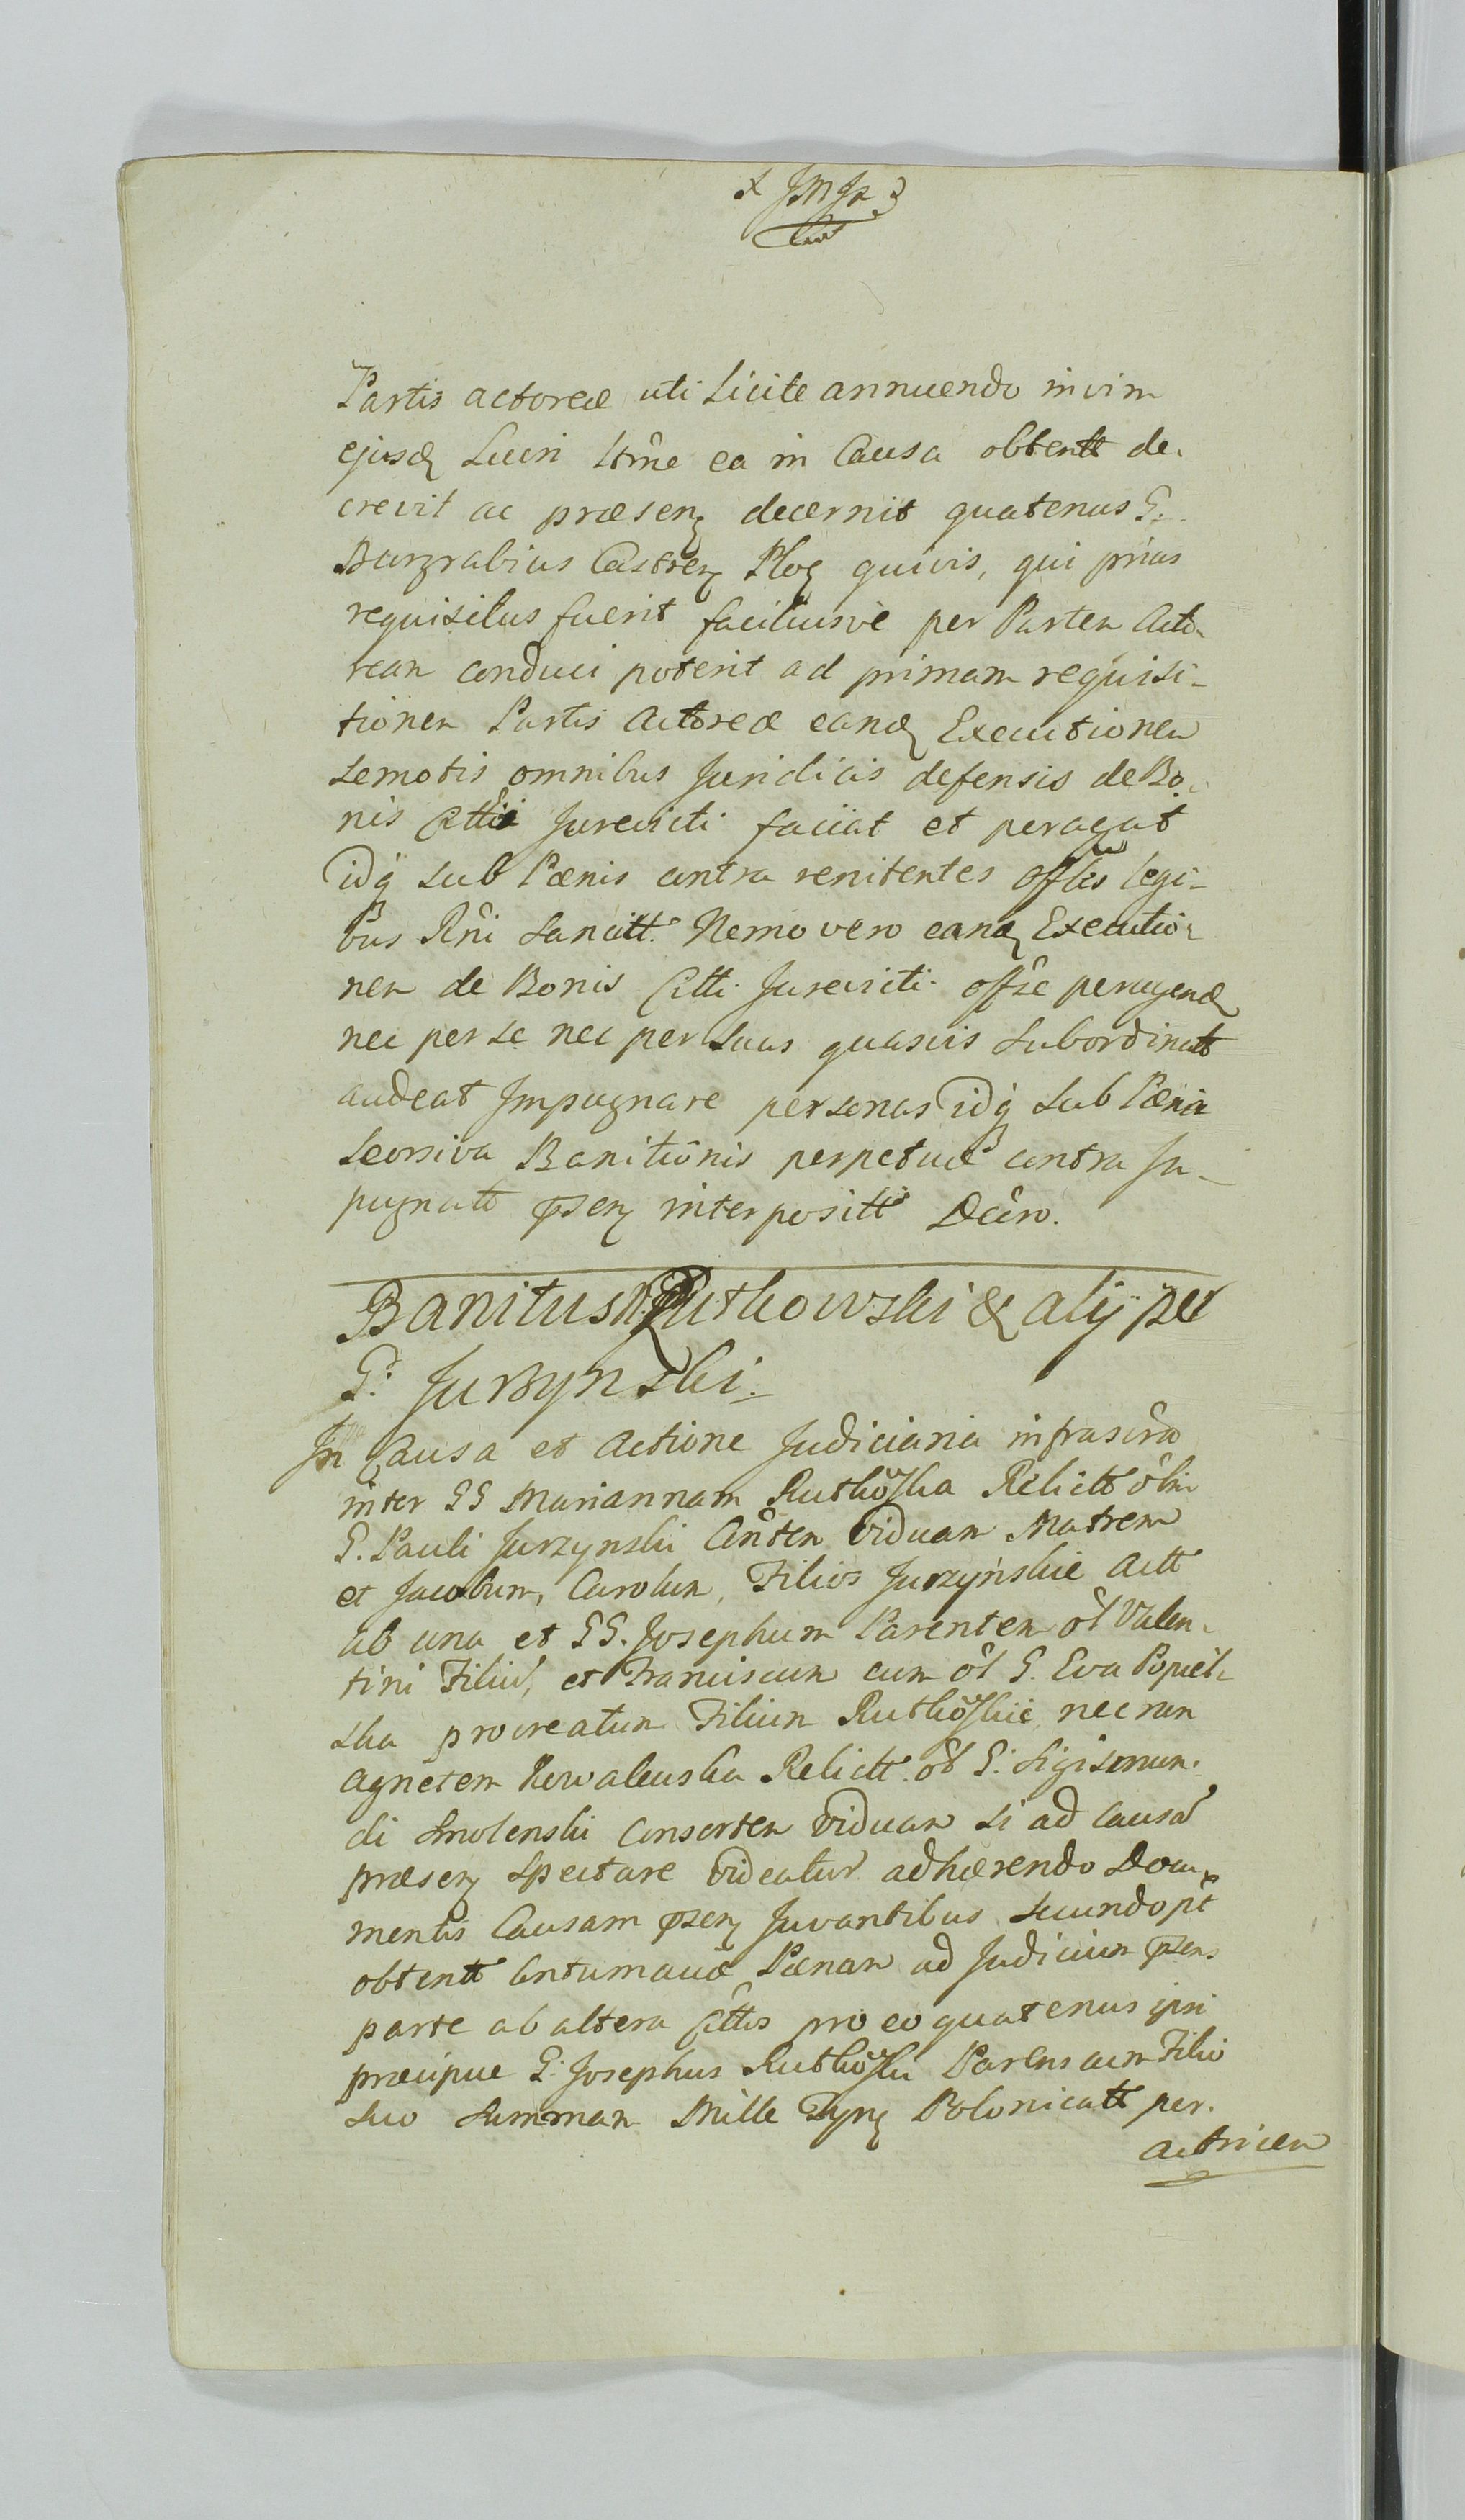 Partis actoreæ uti Licite annuendo in vim
ejusd Lucri ltme ea in Causa obtentt de-
crevit ac præsenz decernit quatenus G.
Burgrabius Castrenz Ploc quivis, qui prius
requisitus fuerit faciliusve per Partem Acto-
ream conduci poterit ad primam requisi-
tionem Partis Actoreæ eand Executionem
semotis omnibus Juridicis defensis de Bo-
nis Citti Jurevicti faciat et peragat
idq sub Pænis contra renitentes Offles legi-
bus Rni sancitt. Nemo vero eand Executio-
nem de Bonis Citti Jurevicti offse peragend
nec per se nec per suas quasvis subordinatt
audeat Impugnare personas idq sub Pæna
seorsiva Banitionis perpetuæ contra Im-
pugnatt psenz interpositt Decro.
Banitus Rutkowski & alij per
G. Jurzynski.
In Causa et Actione Judiciaria infrascra
inter GG Mariannam Rutkoska Relictt olim
G. Pauli Jurzynski Consten Viduam Matrem
et Jacobum, Carolum, Filios Jurzyńskie Actt
ab una et GG. Josephum Parentem ol Valen-
tini Filiu, et Franciscum cum ol G. Eva Popiel-
ska procreatum Filium Rutkoskie, nec non
Agnetem Kowalewska Relictt. ol G. Sigismun-
di Smolenski Consortem Viduam si ad Causa
præsenz spectare videatur adhærendo Docu-
mentis Causam psenz Juvantibus secundo pt
obtentt Contumaciæ Pænam ad Judicium psens
parte ab altera Cittos pro eo quatenus ipsi
præcipue G. Josephus Rutkoski Parens cum Filio
suo summam Mille Tynz Polonicatt per.
actricem